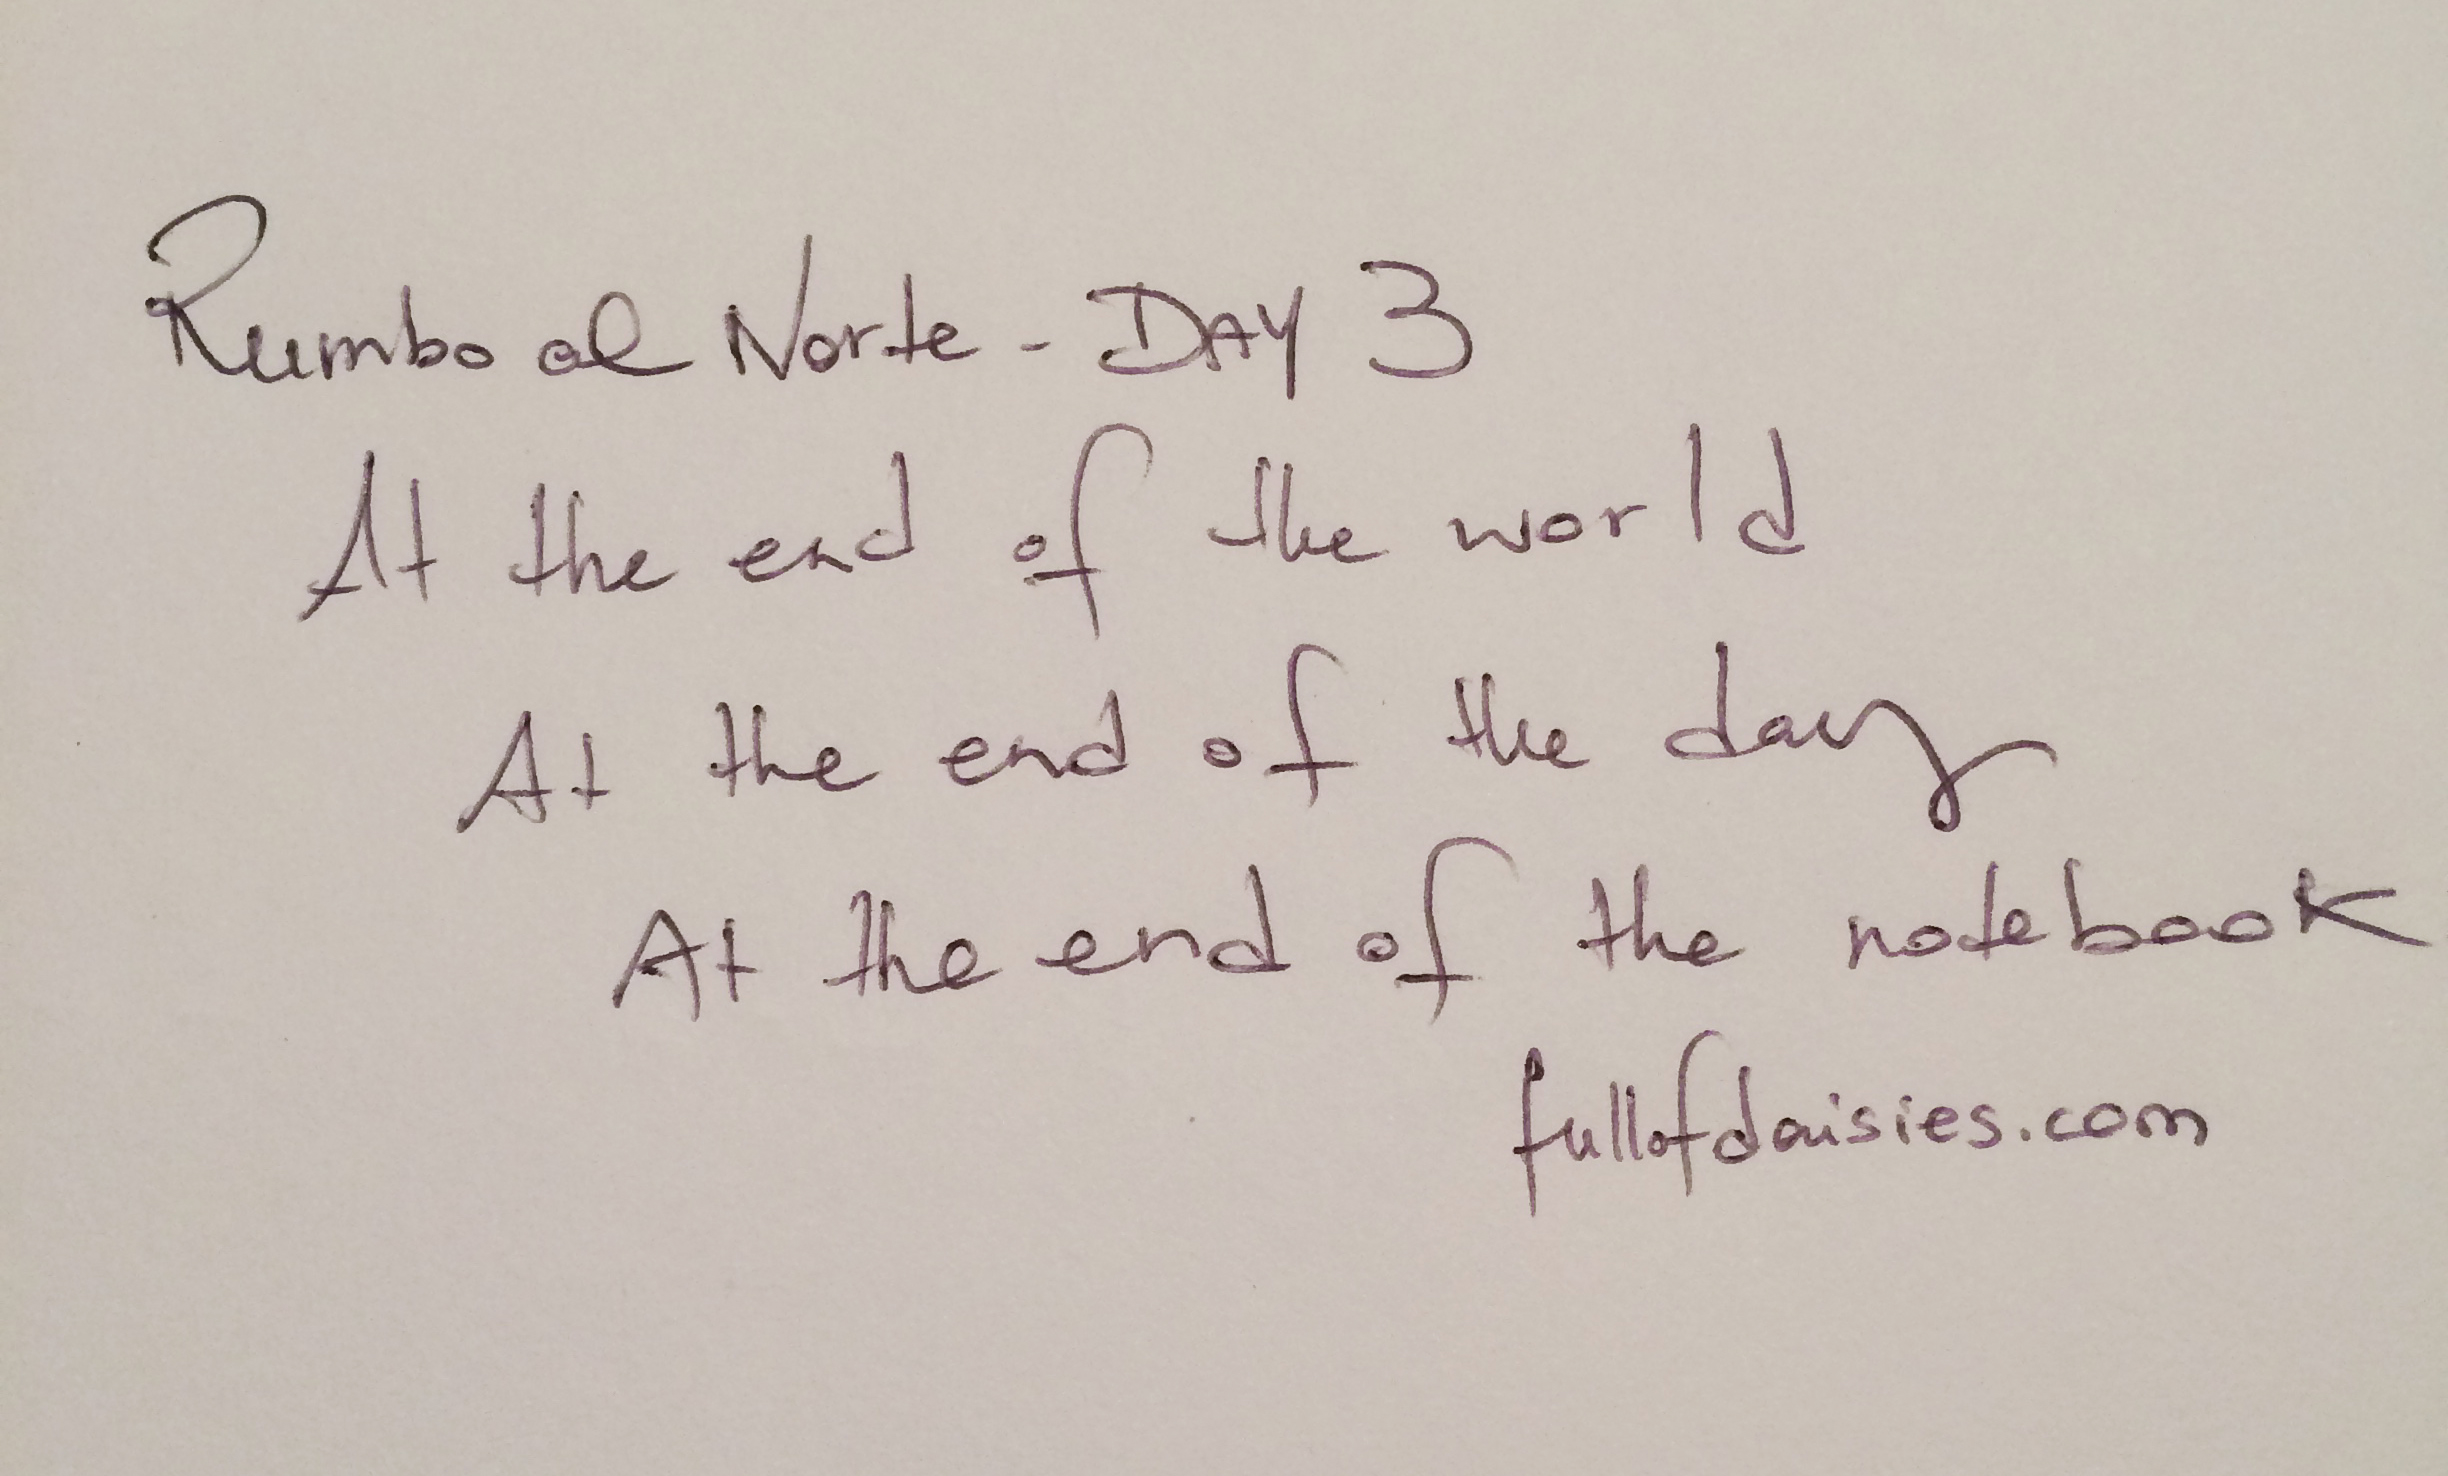 Rumbo al Norte - DAY 3
At the end of the world
At the end of the day
At the end of the notebook
fullofdaisies.com